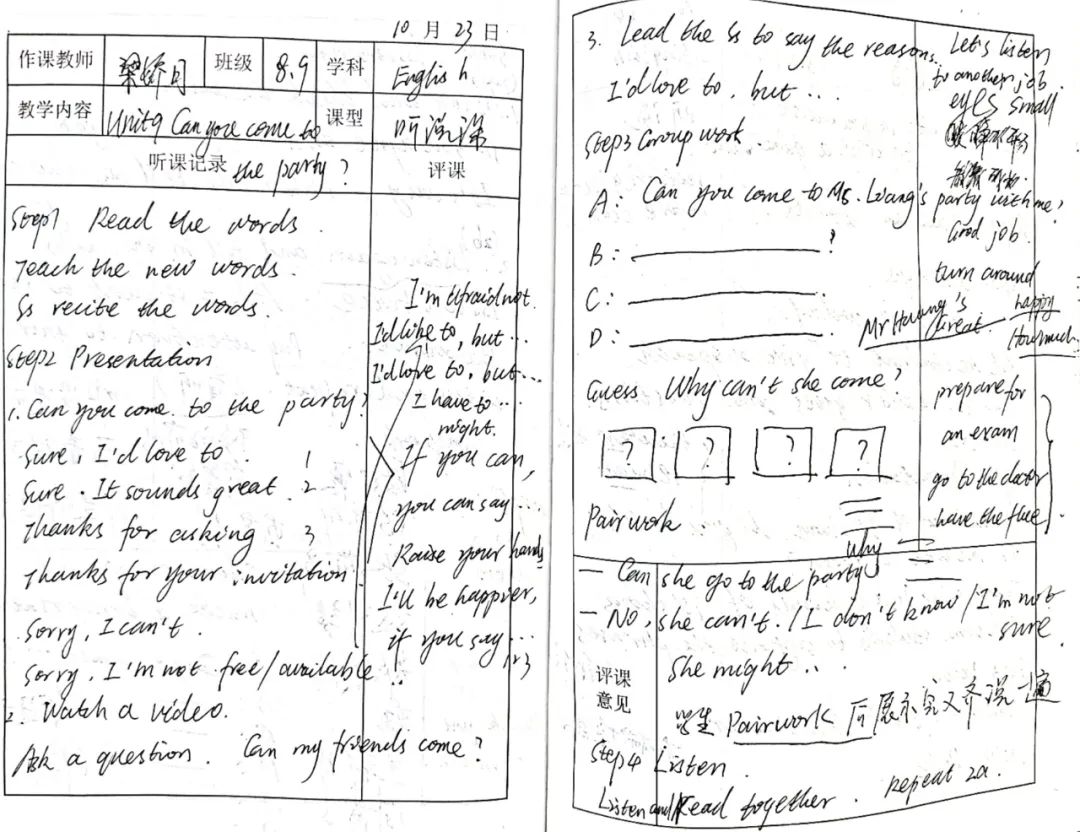 10 月 23 日
作课教师
班级 8.9 学科 English
教学内容 Unit9 Can you come to 课型 听说课
听课记录 the party? 评课
Step1 Read the words.
Teach the new words.
Ss recite the words.
Step2 Presentation
1. Can you come to the party?
Sure, I'd love to. 1
Sure. It sounds great. 2
Thanks for asking. 3
Thanks for your invitation
Sorry, I can't.
Sorry, I'm not free/available
2. Watch a video.
Ask a question. Can my friends come?
I'm afraid not.
I'd like to, but...
I'd love to, but...
I have to...
might.
If you can,
you can say...
Raise your hands
I'll be happier,
if you say...
3. Lead the Ss to say the reasons.
I'd love to, but...
Step3 Group work
A: Can you come to Ms. Wang's party with me?
B: ?
C:
D:
Guess Why can't she come?
? ? ? ?
Pair work
why
Let's listen
to another job
eyes small
Good job.
turn around
Mr Huang's
great happy
How much
prepare for
an exam
go to the doctor
have the flu
— Can she go to the party
— No, she can't. / I don't know / I'm not
sure.
She might...
评课
意见
学生 Pair work 后展示完又齐说一遍
Step4 Listen.
Listen and Read together. repeat 2a.